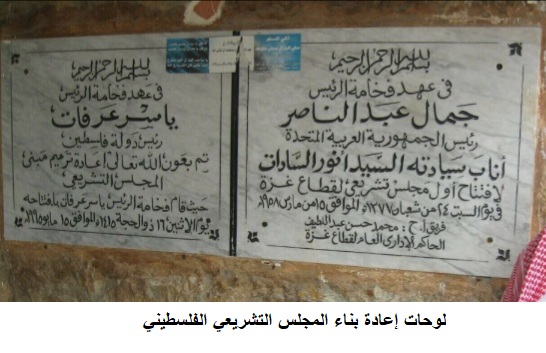 بسم الله الرحمن الرحيم
في عهد فخامة الرئيس
جمال عبد الناصر
رئيس الجمهورية العربية المتحدة
أناب سيادته السيد أنور السادات
لإفتتاح أول مجلس تشريعي لقطاع غزة
في يوم السبت ٢٤ من شعبان ١٣٧٧ هـ الموافق ١٥ من مارس ١٩٥٨
فريق أ.ح : محمد حسن عبد اللطيف
الحاكم الإداري العام لقطاع غزة
بسم الله الرحمن الرحيم
في عهد فخامة الرئيس
ياسر عرفات
رئيس دولة فلسطين
تم بعون الله تعالى إعادة ترميم مبنى
المجلس التشريعي
حيث قام فخامة الرئيس ياسر عرفات بافتتاحه
يوم الاثنين ١٦ ذو الحجة ١٤١٥ هـ الموافق ١٥ مايو ١٩٩٥م
لوحات إعادة بناء المجلس التشريعي الفلسطيني